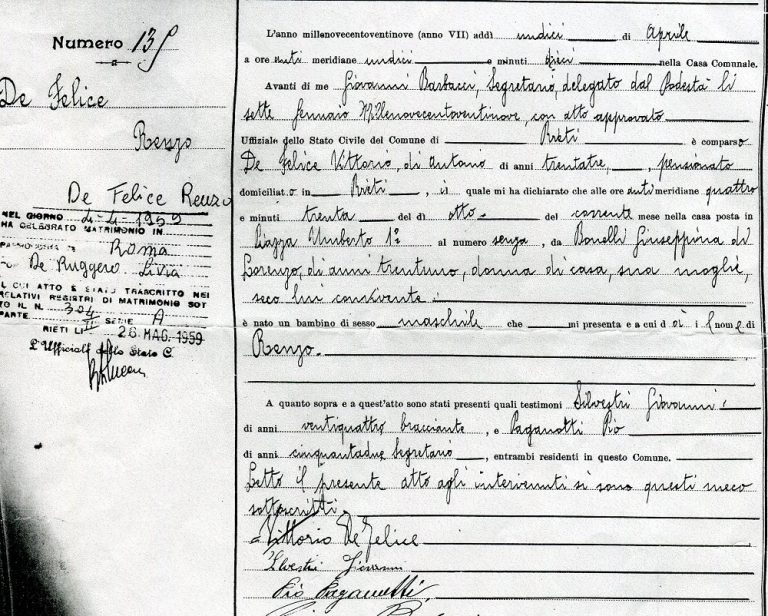 Numero 135
De Felice
Renzo
De Felice Renzo
NEL GIORNO 4-4-1959
HA CELEBRATO MATRIMONIO IN
Roma
De Ruggero Livia
IL CUI ATTO È STATO TRASCRITTO NEI
RELATIVI REGISTRI DI MATRIMONIO SOT
TO IL N. 304
PARTE II SERIE A
RIETI LI 26 MAG. 1959
L'Ufficiale dello Stato C.
L'anno millenovecentoventinove (anno VII) addì undici di Aprile
a ore anti meridiane undici e minuti dieci nella Casa Comunale.
Avanti di me Giovanni Barbacci, Segretario, delegato dal Podestà li
sette Gennaro Millenovecentoventinove, con atto approvato
Uffiziale dello Stato Civile del Comune di Rieti è comparso
De Felice Vittorio, di Antonio di anni trentatre, pensionato
domiciliato in Rieti, il quale mi ha dichiarato che alle ore antimeridiane quattro
e minuti trenta del dì otto del corrente mese nella casa posta in
Piazza Umberto 1° al numero senza, da Bonelli Giuseppina di
Lorenzo, di anni trentuno, donna di casa, sua moglie,
seco lui convivente
è nato un bambino di sesso maschile che mi presenta e a cui dà il nome di
Renzo.
A quanto sopra e a quest'atto sono stati presenti quali testimoni Silvestri Giovanni
di anni ventiquattro bracciante, e Paganetti Pio
di anni cinquantadue Segretario, entrambi residenti in questo Comune.
Letto il presente atto agli intervenuti si sono questi meco
sottoscritti.
Vittorio De Felice
Silvestri Giovanni
Pio Paganetti